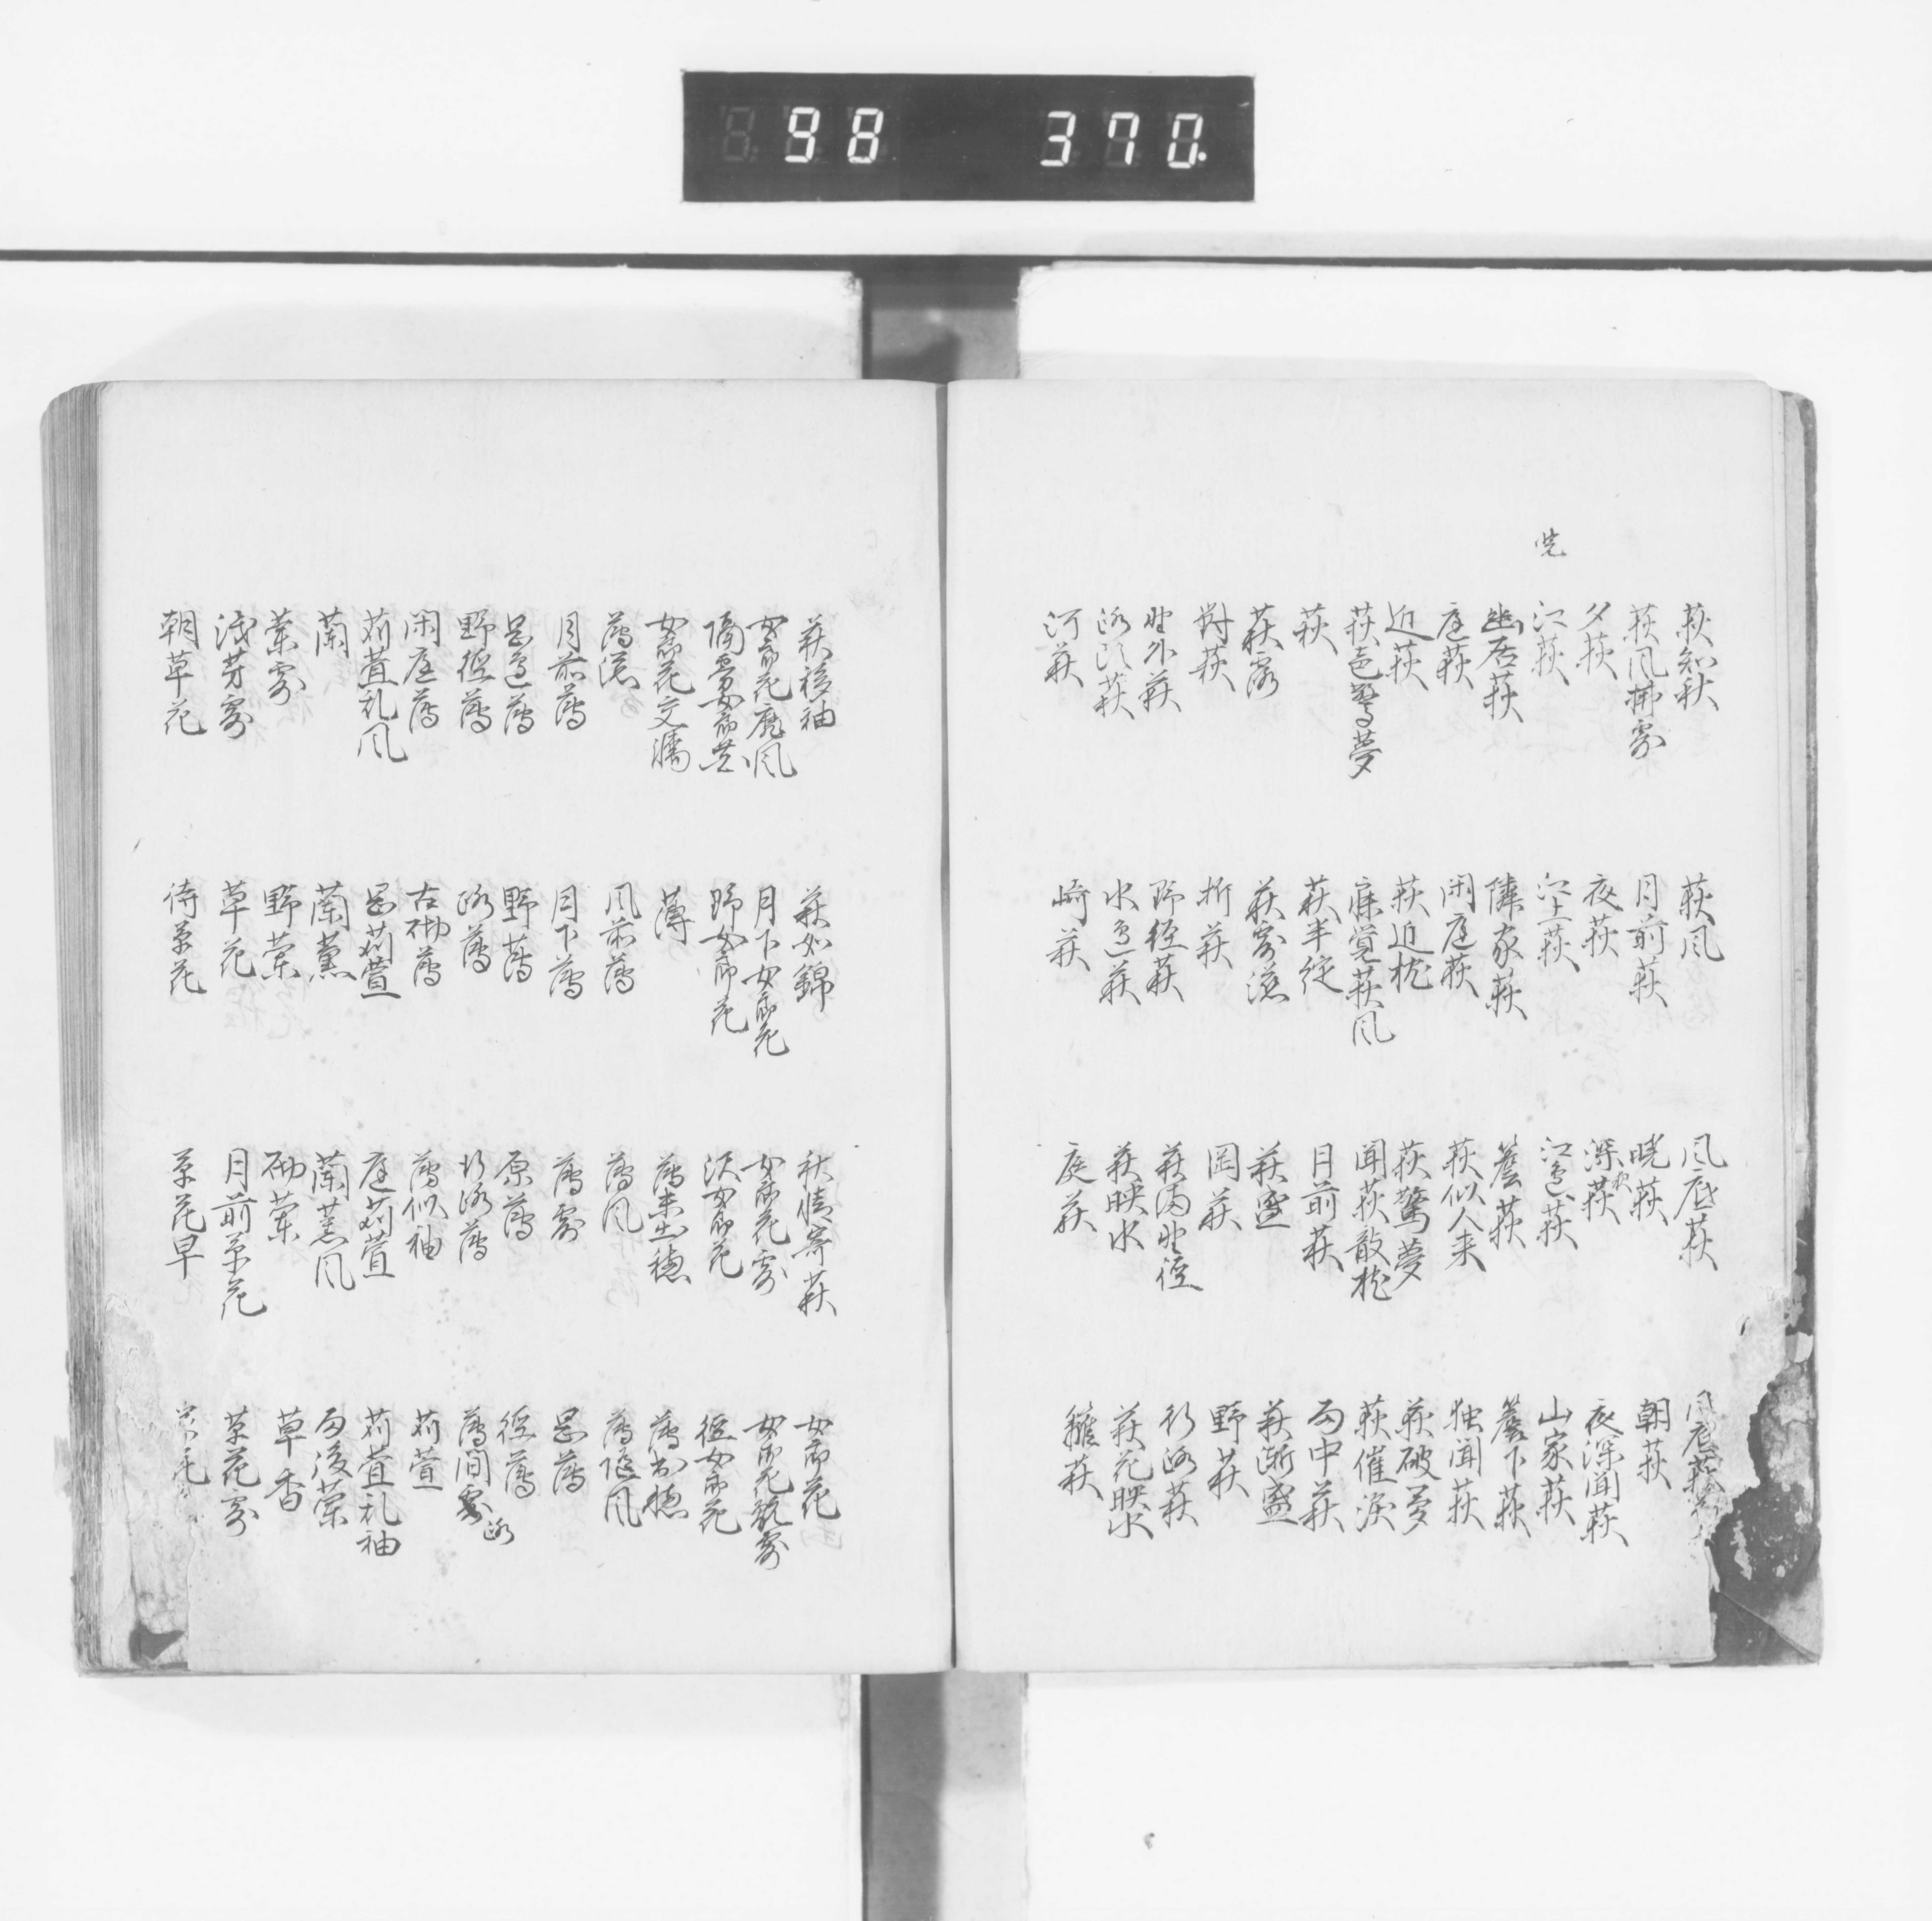 98 370
荻知秋 荻風 風底荻 風底荻
荻風拂露 月前荻 暁荻 朝荻
夕荻 夜荻 深夜荻 夜深聞荻
江荻 江上荻 江辺荻 山家荻
幽居荻 隣家荻 簷荻 簷下荻
庭荻 閑庭荻 荻似人来 独聞荻
近荻 荻近枕 荻驚夢 荻破夢
荻声驚夢 寐覚荻風 聞荻敧枕 荻催涙
萩 萩半綻 月前萩 雨中萩
萩露 萩露滋 萩盛 萩漸盛
對萩 折萩 岡萩 野萩
野外萩 野径萩 萩満野径 行路萩
路頭萩 水辺萩 萩映水 萩花映水
河萩 崎萩 庭萩 籬萩
萩移袖 萩如錦 秋情寄萩 女郎花
女郎花靡風 月下女郎花 女郎花露 女郎花
隔霧女郎花 野女郎花 沢女郎花 径女郎花
女郎花交牆 薄 薄未出穂 薄出穂
薄滋 風前薄 薄風 薄随風
月前薄 月下薄 薄露 岡薄
岡辺薄 野薄 原薄 径薄
野径薄 路薄 行路薄 薄間露 路
閑庭薄 古砌薄 薄似袖 苅萱
苅萱乱風 岡苅萱 庭苅萱 苅萱乱袖
蘭 蘭薫 蘭薫風 雨後蘭
蘭露 野蘭 砌蘭 草香
浅茅露 草花 月前草花 草花露
朝草花 待草花 草花早